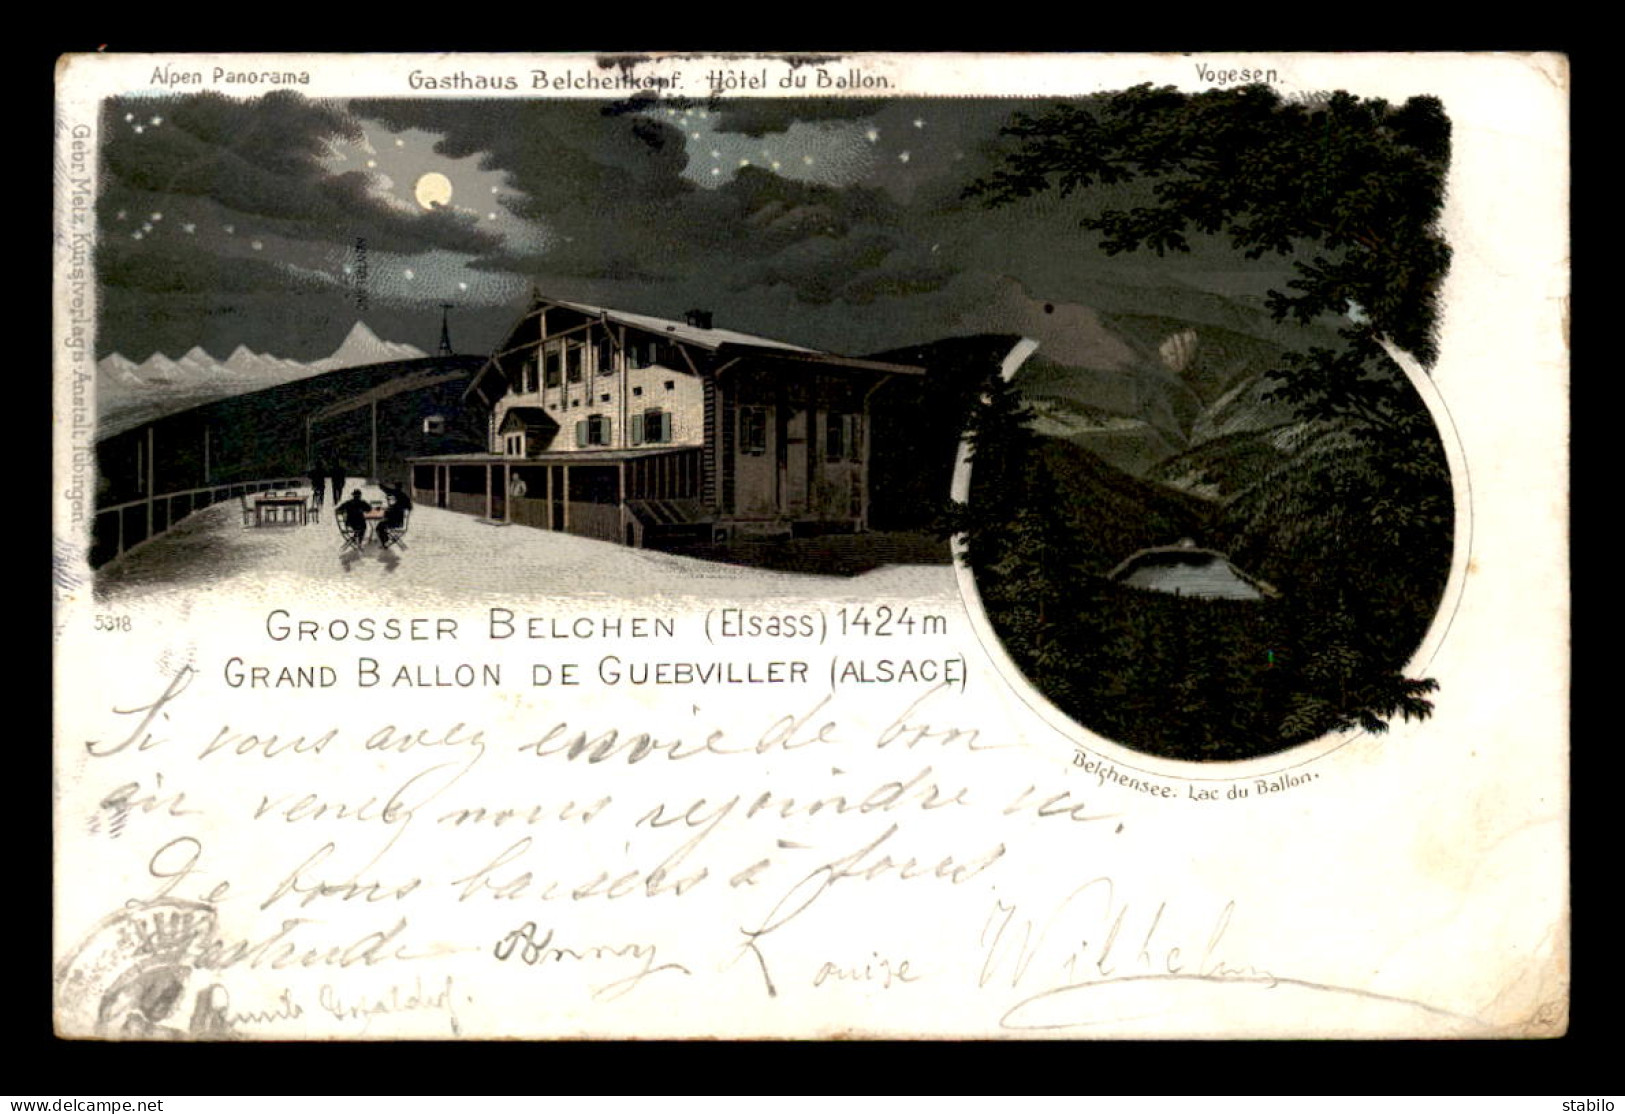 Alpen Panorama
Gasthaus Belchenkopf. Hôtel du Ballon.
Vogesen.
Gebr. Metz, Kunstverlags-Anstalt Tübingen.
5318
GROSSER BELCHEN (Elsass) 1424m
GRAND BALLON DE GUEBVILLER (ALSACE)
Belchensee. Lac du Ballon.
Si vous avez envie de bon
air venez nous rejoindre ici.
De bons baisers à tous.
Gertrude Anny Louise Wilhelm
delcampe.net
stabilo